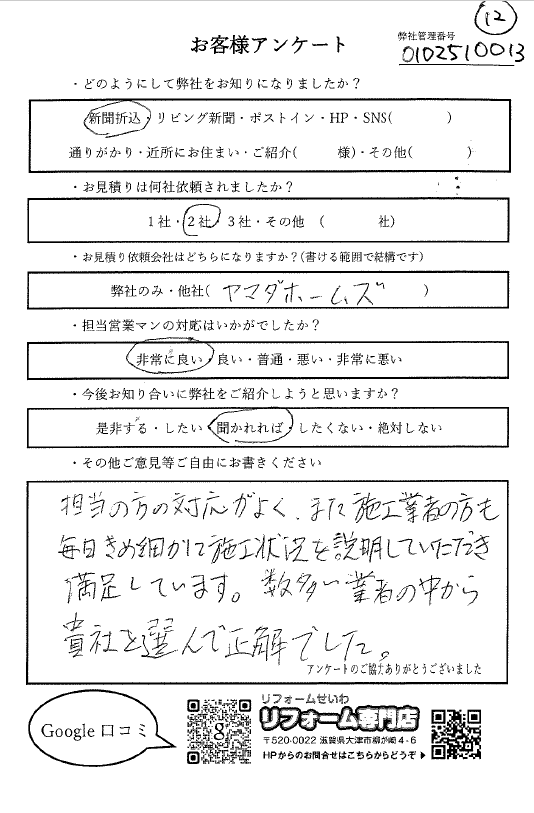 12
弊社管理番号
0102510013
お客様アンケート
・どのようにして弊社をお知りになりましたか?
新聞折込・リビング新聞・ポストイン・HP・SNS(　　　　)
通りがかり・近所にお住まい・ご紹介(　　　様)・その他(　　　　)
・お見積りは何社依頼されましたか?
1社・2社・3社・その他　(　　　　社)
・お見積り依頼会社はどちらになりますか?(書ける範囲で結構です)
弊社のみ・他社(　ヤマダホームズ　)
・担当営業マンの対応はいかがでしたか?
非常に良い・良い・普通・悪い・非常に悪い
・今後お知り合いに弊社をご紹介しようと思いますか?
是非する・したい・聞かれれば・したくない・絶対しない
・その他ご意見等ご自由にお書きください
担当の方の対応がよく、また施工業者の方も
毎日きめ細かに施工状況を説明していただき
満足しています。数多い業者の中から
貴社を選んで正解でした。
アンケートのご協力ありがとうございました
Google口コミ
8
リフォームせいわ
リフォーム専門店
〒520-0022 滋賀県大津市柳が崎4-6
HPからのお問合せはこちらからどうぞ▶